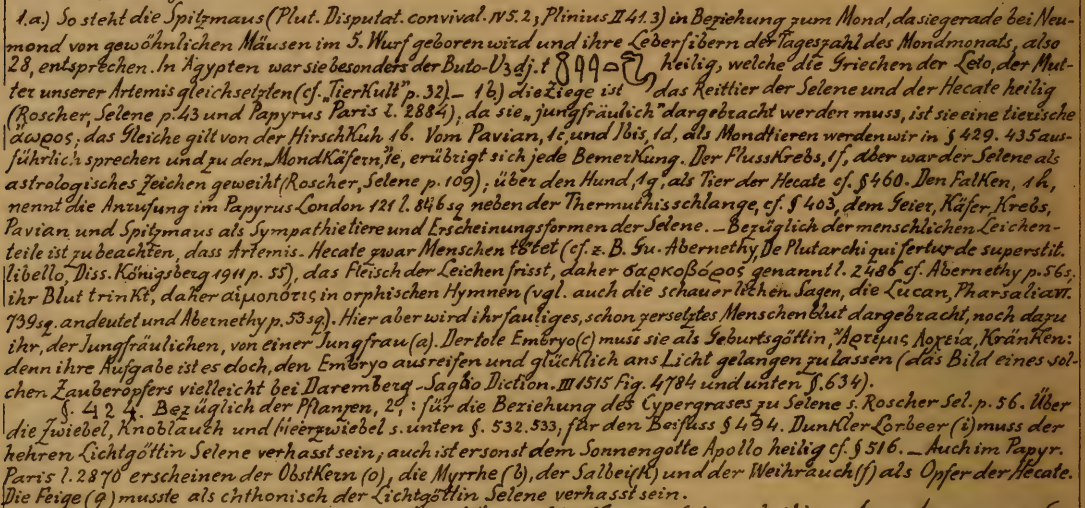 1.a.) So steht die Spitzmaus (Plut. Disputat. convival. IV 5. 2; Plinius II 41. 3) in Beziehung zum Mond, da sie gerade bei Neu-
mond von gewöhnlichen Mäusen im 5. Wurf geboren wird und ihre Leberfibern der Tageszahl des Mondmonats, also
28, entsprechen. In Ägypten war sie besonders der Buto-Uȝdj.t heilig, welche die Griechen der Leto, der Mut-
ter unserer Artemis gleichsetzten (cf. „Tierkult" p. 32) _ 1b) die Ziege ist das Reittier der Selene und der Hecate heilig
(Roscher, Selene p. 43 und Papyrus Paris l. 2884); da sie „jungfräulich" dargebracht werden muss, ist sie eine tierische
ἄωρος; das Gleiche gilt von der Hirschkuh 1b. Vom Pavian, 1c, und Ibis, 1d, als Mondtieren werden wir in § 429. 435 aus-
führlich sprechen und zu den „Mondkäfern", 1e, erübrigt sich jede Bemerkung. Der Flusskrebs, 1f, aber war der Selene als
astrologisches Zeichen geweiht (Roscher, Selene p. 109); über den Hund, 1g, als Tier der Hecate cf. § 460. Den Falken, 1h,
nennt die Anrufung im Papyrus London 121 l. 846 sq neben der Thermuthisschlange, cf. § 403, dem Geier, Käfer, Krebs,
Pavian und Spitzmaus als Sympathietiere und Erscheinungsformen der Selene. _ Bezüglich der menschlichen Leichen-
teile ist zu beachten, dass Artemis-Hecate zwar Menschen tötet (cf. z. B. Gu. Abernethy, De Plutarchi qui fertur de superstit.
libello, Diss. Königsberg 1911 p. 55), das Fleisch der Leichen frisst, daher σαρκοβόρος genannt l. 2486 cf. Abernethy p. 56s,
ihr Blut trinkt, daher αἱμοπότις in orphischen Hymnen (vgl. auch die schauerlichen Sagen, die Lucan, Pharsalia VI.
739 sq. andeutet und Abernethy p. 53 sq). Hier aber wird ihr fauliges, schon zersetztes Menschenblut dargebracht, noch dazu
ihr, der Jungfräulichen, von einer Jungfrau (a). Der tote Embryo (c) muss sie als Geburtsgöttin, Ἄρτεμις Λοχεία, kränken:
denn ihre Aufgabe ist es doch, den Embryo ausreifen und glücklich ans Licht gelangen zu lassen (das Bild eines sol-
chen Zauberopfers vielleicht bei Daremberg-Saglio Diction. III 1515 Fig. 4784 und unten §. 634).
§. 424. Bezüglich der Pflanzen, 2,: für die Beziehung des Cypergrases zu Selene s. Roscher Sel. p. 56. Über
die Zwiebel, Knoblauch und Meerzwiebel s. unten §. 532. 533, für den Beifuss § 494. Dunkler Lorbeer (i) muss der
hehren Lichtgöttin Selene verhasst sein; auch ist er sonst dem Sonnengotte Apollo heilig cf. § 516. _ Auch im Papyr.
Paris l. 2870 erscheinen der Obstkern (o), die Myrrhe (b), der Salbei (k) und der Weihrauch (f) als Opfer der Hecate.
Die Feige (g) musste als chthonisch der Lichtgöttin Selene verhasst sein.